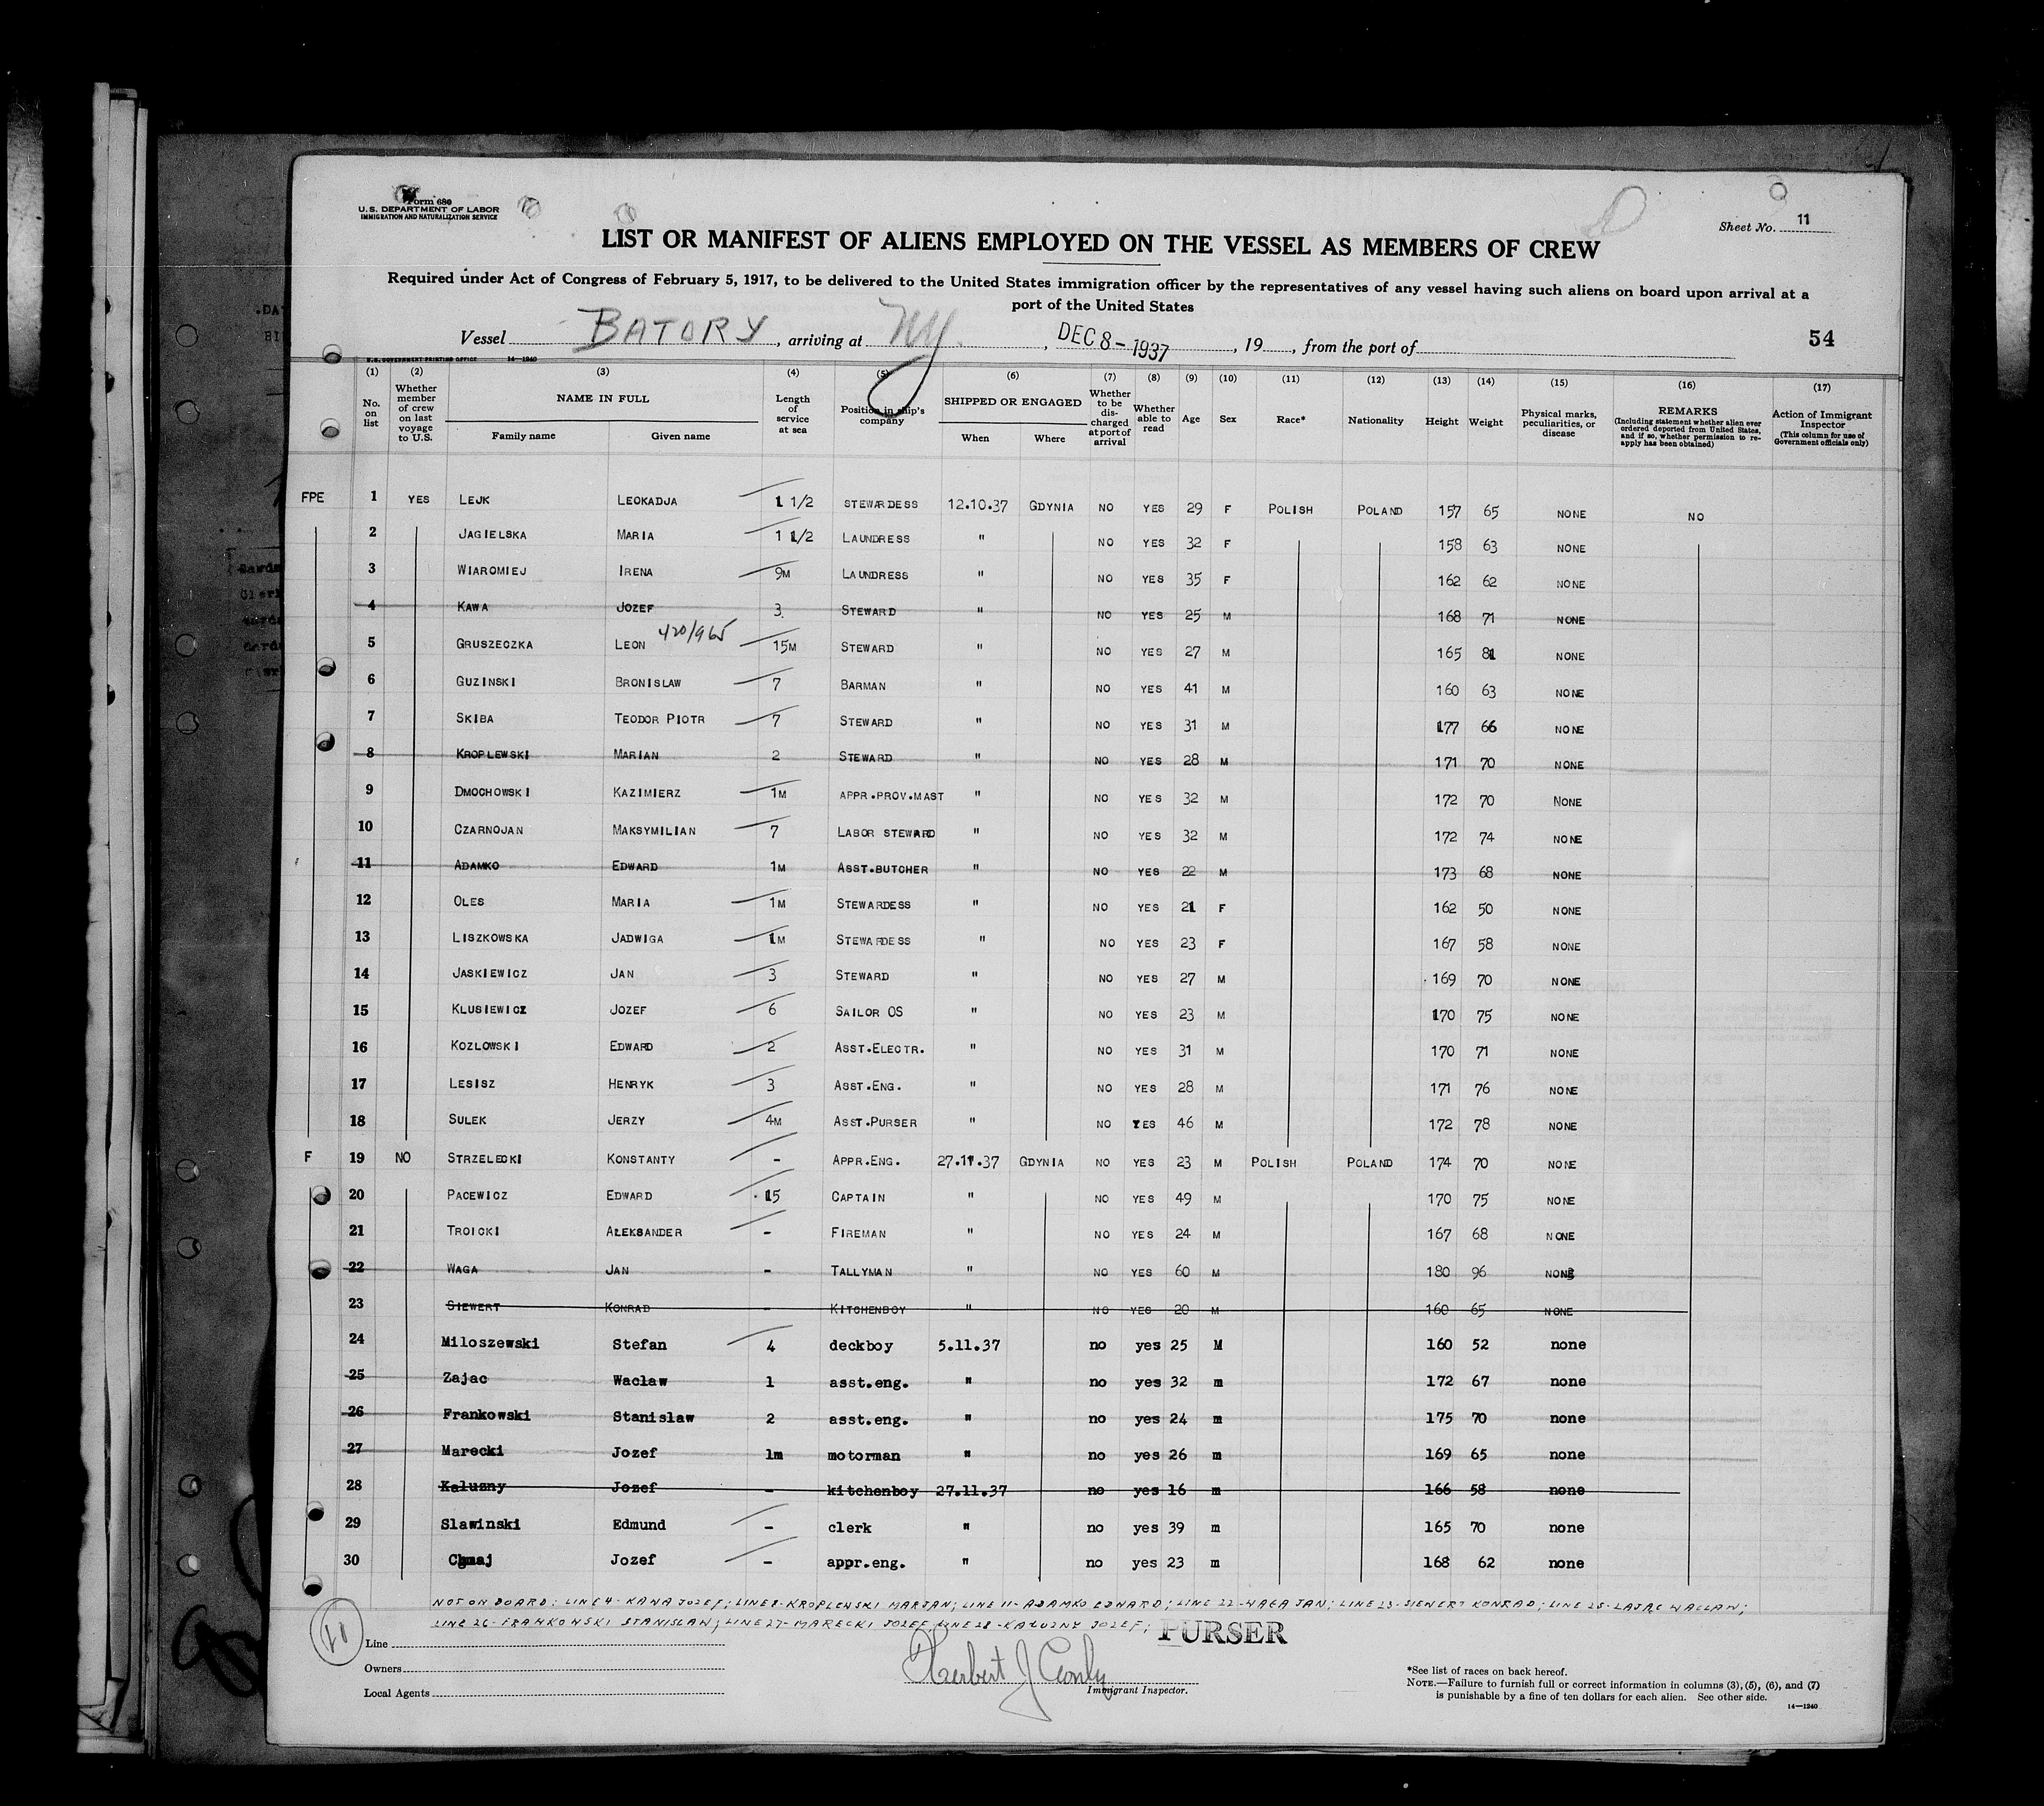 Form 680
U.S. DEPARTMENT OF LABOR
IMMIGRATION AND NATURALIZATION SERVICE
Sheet No. 11
LIST OR MANIFEST OF ALIENS EMPLOYED ON THE VESSEL AS MEMBERS OF CREW
Required under Act of Congress of February 5, 1917, to be delivered to the United States immigration officer by the representatives of any vessel having such aliens on board upon arrival at a
port of the United States
Vessel BATORY, arriving at NY., DEC 8-1937, 19, from the port of 54
U.S. GOVERNMENT PRINTING OFFICE 14—1240
(1) (2) (3) (4) (5) (6) (7) (8) (9) (10) (11) (12) (13) (14) (15) (16) (17)
No. on list
Whether member of crew on last voyage to U.S.
NAME IN FULL
Family name Given name
Length of service at sea
Position in ship's company
SHIPPED OR ENGAGED
When Where
Whether to be discharged at port of arrival
Whether able to read
Age
Sex
Race*
Nationality
Height
Weight
Physical marks, peculiarities, or disease
REMARKS
(Including statement whether alien ever ordered deported from United States, and if so, whether permission to reapply has been obtained)
Action of Immigrant Inspector
(This column for use of Government officials only)
FPE 1 YES LEJK LEOKADJA 1 1/2 STEWARDESS 12.10.37 GDYNIA NO YES 29 F POLISH POLAND 157 65 NONE NO
2 JAGIELSKA MARIA 1 1/2 LAUNDRESS " NO YES 32 F 158 63 NONE
3 WIAROMIEJ IRENA 9M LAUNDRESS " NO YES 35 F 162 62 NONE
4 KAWA JOZEF 3 STEWARD " NO YES 25 M 168 71 NONE
420/965
5 GRUSZECZKA LEON 15M STEWARD " NO YES 27 M 165 81 NONE
6 GUZINSKI BRONISLAW 7 BARMAN " NO YES 41 M 160 63 NONE
7 SKIBA TEODOR PIOTR 7 STEWARD " NO YES 31 M 177 66 NONE
8 KROPLEWSKI MARIAN 2 STEWARD " NO YES 28 M 171 70 NONE
9 DMOCHOWSKI KAZIMIERZ 1M APPR.PROV.MAST " NO YES 32 M 172 70 NONE
10 CZARNOJAN MAKSYMILIAN 7 LABOR STEWARD " NO YES 32 M 172 74 NONE
11 ADAMKO EDWARD 1M ASST.BUTCHER " NO YES 22 M 173 68 NONE
12 OLES MARIA 1M STEWARDESS " NO YES 21 F 162 50 NONE
13 LISZKOWSKA JADWIGA 1M STEWARDESS " NO YES 23 F 167 58 NONE
14 JASKIEWICZ JAN 3 STEWARD " NO YES 27 M 169 70 NONE
15 KLUSIEWICZ JOZEF 6 SAILOR OS " NO YES 23 M 170 75 NONE
16 KOZLOWSKI EDWARD 2 ASST.ELECTR. " NO YES 31 M 170 71 NONE
17 LESISZ HENRYK 3 ASST.ENG. " NO YES 28 M 171 76 NONE
18 SULEK JERZY 4M ASST.PURSER " NO YES 46 M 172 78 NONE
F 19 NO STRZELECKI KONSTANTY - APPR.ENG. 27.11.37 GDYNIA NO YES 23 M POLISH POLAND 174 70 NONE
20 PACEWICZ EDWARD 15 CAPTAIN " NO YES 49 M 170 75 NONE
21 TROICKI ALEKSANDER - FIREMAN " NO YES 24 M 167 68 NONE
22 WAGA JAN - TALLYMAN " NO YES 60 M 180 96 NONE
23 SIEWERT KONRAD - KITCHENBOY " NO YES 20 M 160 65 NONE
24 Miloszewski Stefan 4 deckboy 5.11.37 no yes 25 M 160 52 none
25 Zajac Waclaw 1 asst.eng. " no yes 32 m 172 67 none
26 Frankowski Stanislaw 2 asst.eng. " no yes 24 m 175 70 none
27 Marecki Jozef 1m motorman " no yes 26 m 169 65 none
28 Kaluzny Jozef - kitchenboy 27.11.37 no yes 16 m 166 58 none
29 Slawinski Edmund - clerk " no yes 39 m 165 70 none
30 Jozef - appr.eng. " no yes 23 m 168 62 none
NOT ON BOARD: LINE 4-KAWA JOZEF; LINE 8-KROPLEWSKI MARJAN; LINE 11-ADAMKO EDWARD; LINE 22-WAGA JAN; LINE 23-SIEWERT KONRAD; LINE 25-ZAJAC WACLAW;
LINE 26-FRANKOWSKI STANISLAW; LINE 27-MARECKI JOZEF; LINE 28-KALUZNY JOZEF; PURSER
11
Line
Owners
Local Agents
Immigrant Inspector.
*See list of races on back hereof.
NOTE.—Failure to furnish full or correct information in columns (3), (5), (6), and (7)
is punishable by a fine of ten dollars for each alien. See other side.
14—1240